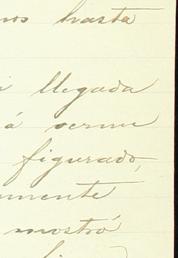 nos hasta
i llegada
á verme
figurado,
mente
mostró